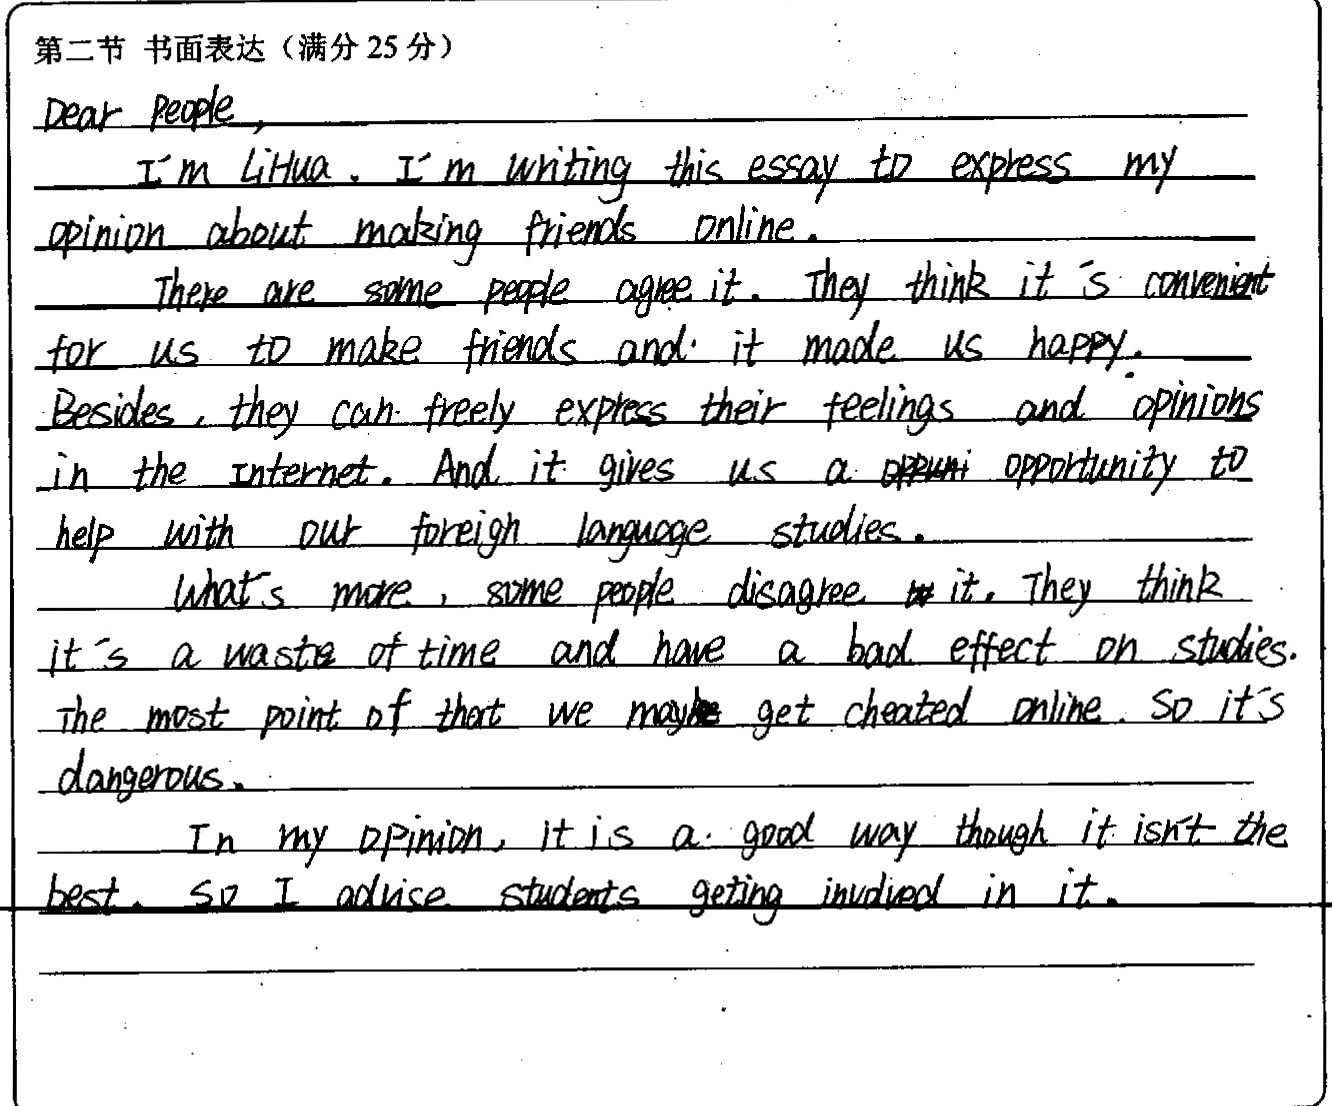 第二节 书面表达（满分 25 分）
Dear People,
I'm LiHua. I'm writing this essay to express my
opinion about making friends online.
There are some people agree it. They think it's convenient
for us to make friends and it made us happy.
Besides, they can freely express their feelings and opinions
in the Internet. And it gives us a opportunity to
help with our foreign language studies.
What's more, some people disagree it. They think
it's a waste of time and have a bad effect on studies.
The most point of that we may get cheated online. So it's
dangerous.
In my opinion, it is a good way though it isn't the
best. So I advise students geting involved in it.